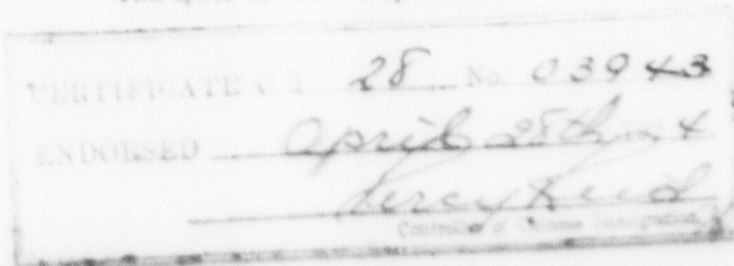 CERTIFICATE C I 28 No. 03943
ENDORSED April 28th
Percy Reid
Controller of Chinese Immigration